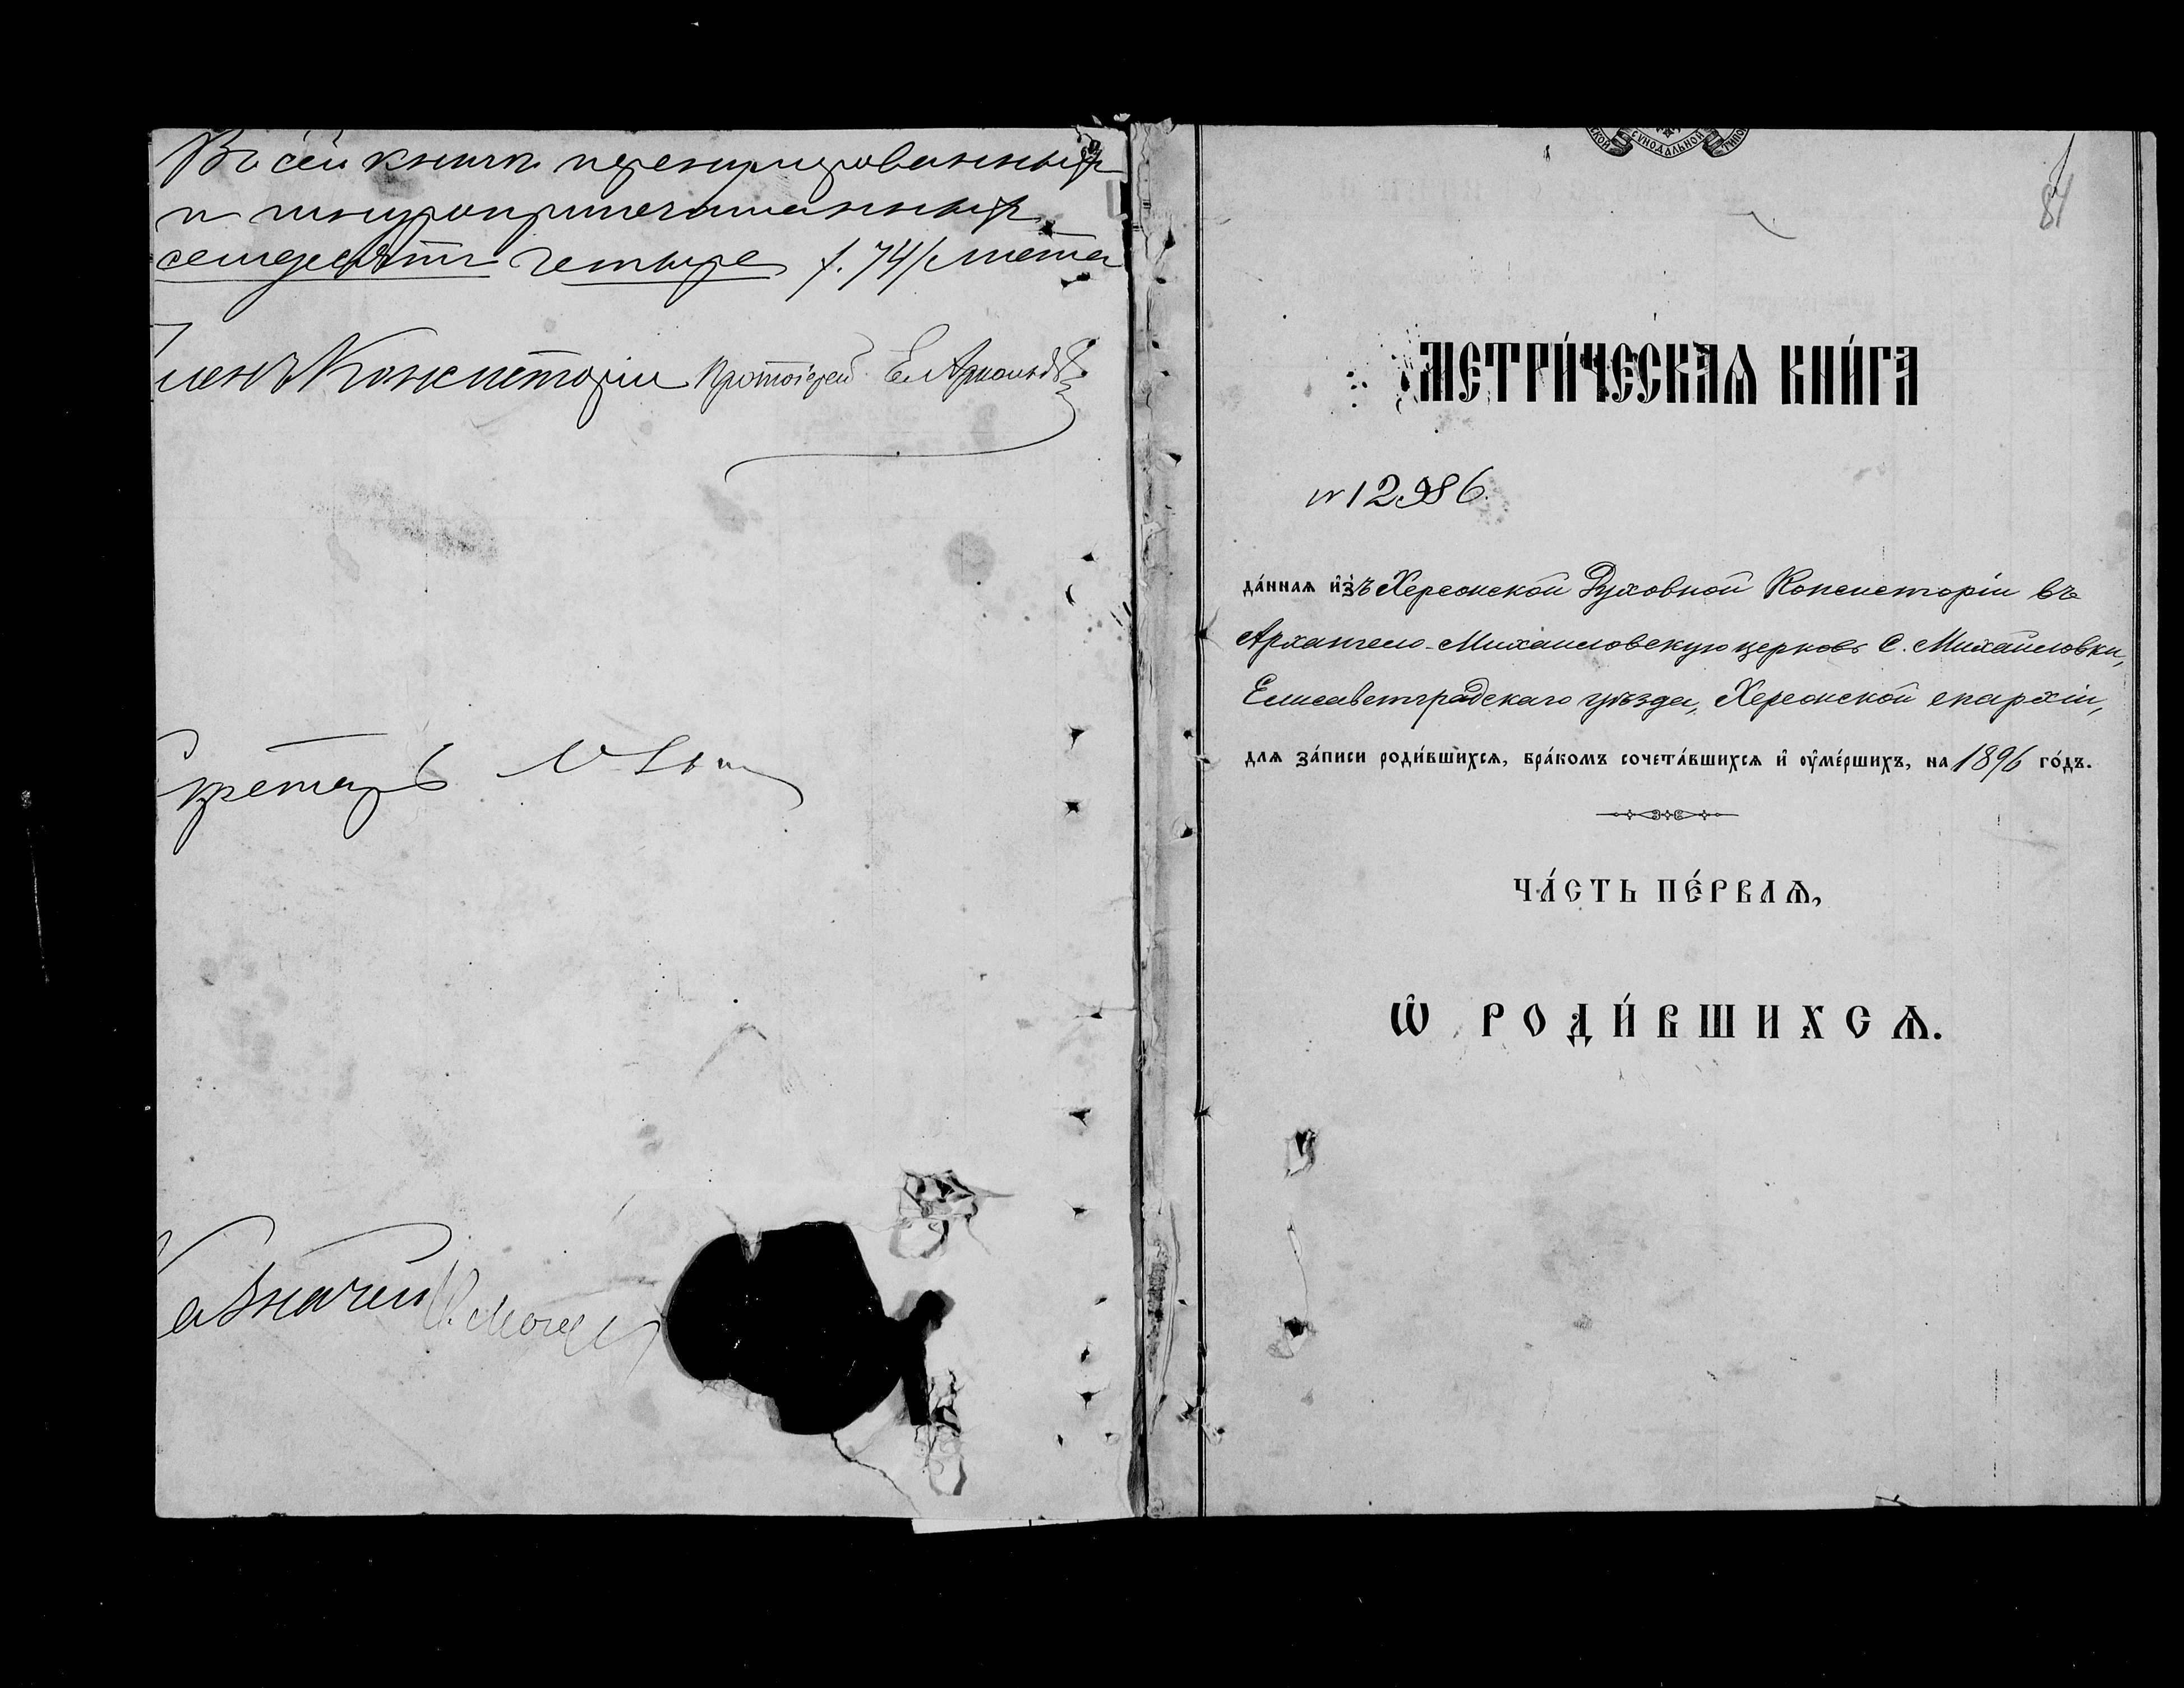 Въ сей книгѣ перенумерованныхъ
и шнуроприпечатанныхъ
семьдесятъ четыре /74/ листа
Членъ Консисторіи Протоіерей
Секретарь
Казначей
СКОЙ СѴНОДАЛЬНОЙ ТИПО
84
МЕТРИ́ЧЕСКАѦ КНИ́ГА
№ 12986.
да́ннаѧ и҆зъ Херсонской Духовной Консисторіи въ
Архангело-Михаиловскую церковь с. Михайловки,
Елисаветградскаго уѣзда, Херсонской епархіи,
для за́писи роди́вшихсѧ, бра́комъ сочета́вшихсѧ и҆ ᲂу҆ме́ршихъ, на 1896 го́дъ.
ЧА́СТЬ ПЕ́РВАѦ,
Ѽ РОДИ́ВШИХСѦ.